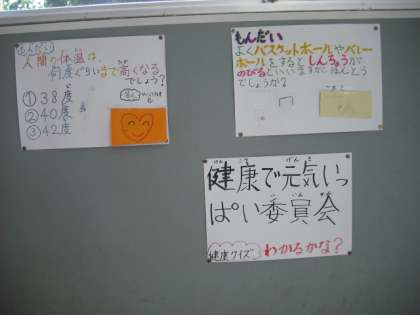 もんだい
人間の体温は、
何度ぐらいまで高くなる
でしょう?
①38度
②40度
③42度
もんだい
よくバスケットボールやバレー
ボールをするとしんちょうが
のびるといいますがほんとう
でしょうか?
こたえ
健康で元気いっ
ぱい委員会
健康クイズ
わかるかな?